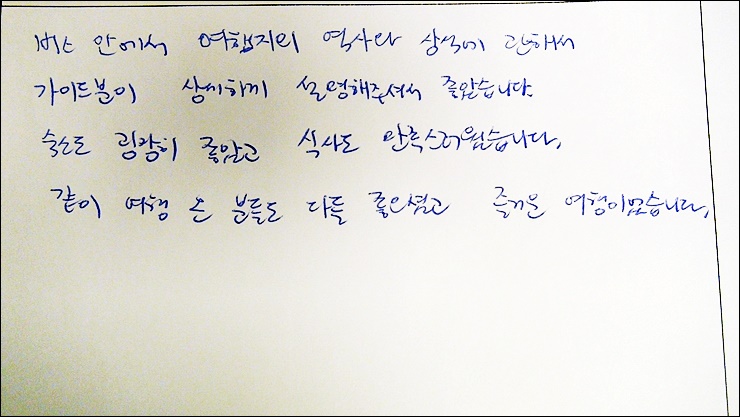 버스 안에서 여행지의 역사와 상식에 관해서
가이드분이 상세하게 설명해주셔서 좋았습니다.
숙소도 굉장히 좋았고 식사도 만족스러웠습니다.
같이 여행 온 분들도 다들 좋으셨고 즐거운 여행이었습니다.